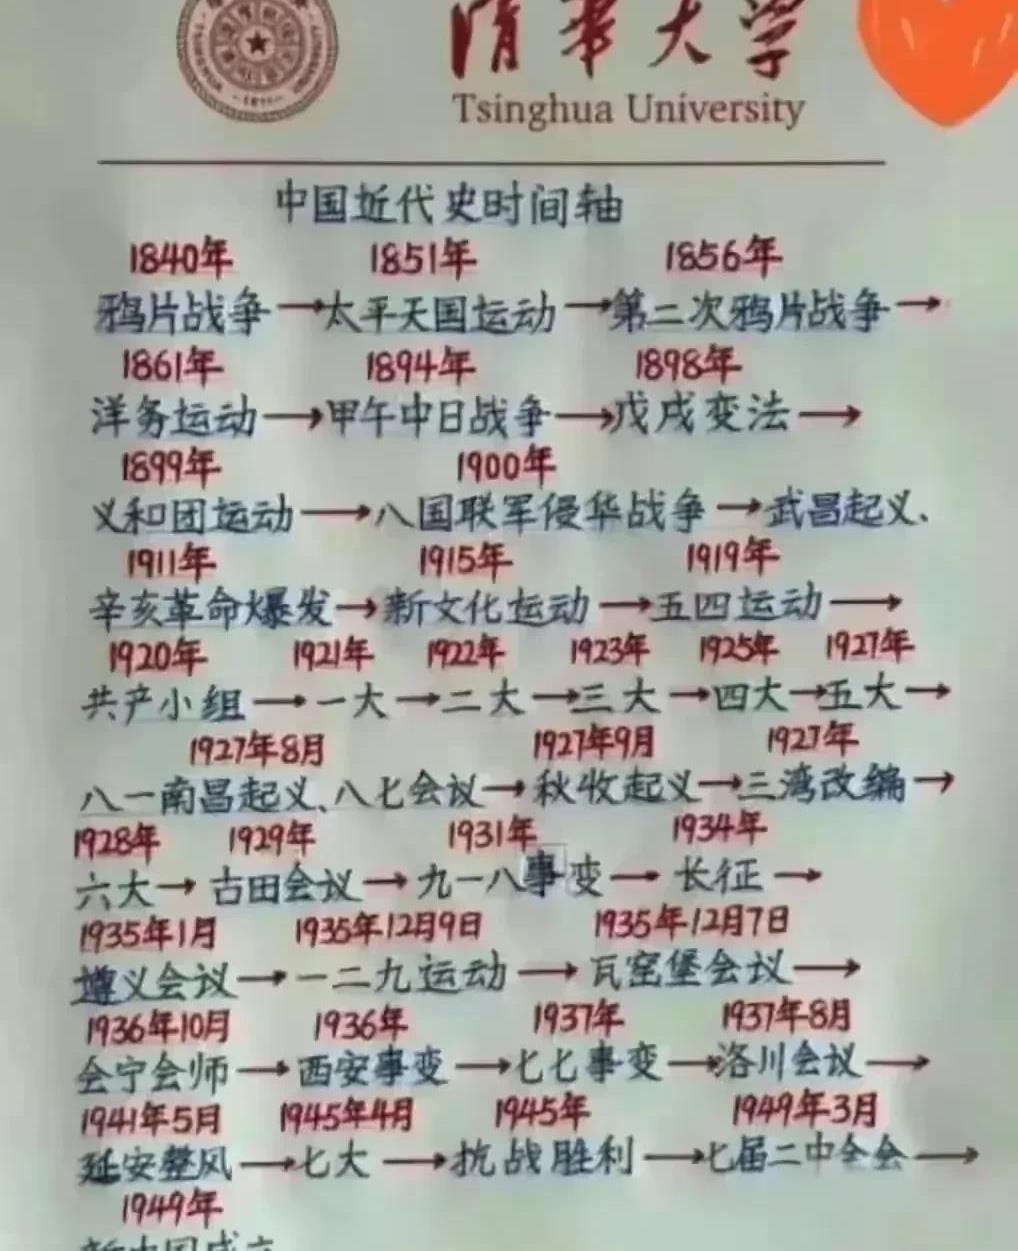 清华大学
Tsinghua University
中国近代史时间轴
1840年 1851年 1856年
鸦片战争→太平天国运动→第二次鸦片战争→
1861年 1894年 1898年
洋务运动→甲午中日战争→戊戌变法→
1899年 1900年
义和团运动→八国联军侵华战争→武昌起义、
1911年 1915年 1919年
辛亥革命爆发→新文化运动→五四运动→
1920年 1921年 1922年 1923年 1925年 1927年
共产小组→一大→二大→三大→四大→五大→
1927年8月 1927年9月 1927年
八一南昌起义、八七会议→秋收起义→三湾改编→
1928年 1929年 1931年 1934年
六大→古田会议→九一八事变→长征→
1935年1月 1935年12月9日 1935年12月7日
遵义会议→一二九运动→瓦窑堡会议→
1936年10月 1936年 1937年 1937年8月
会宁会师→西安事变→七七事变→洛川会议→
1941年5月 1945年4月 1945年 1949年3月
延安整风→七大→抗战胜利→七届二中全会→
1949年
新中国成立